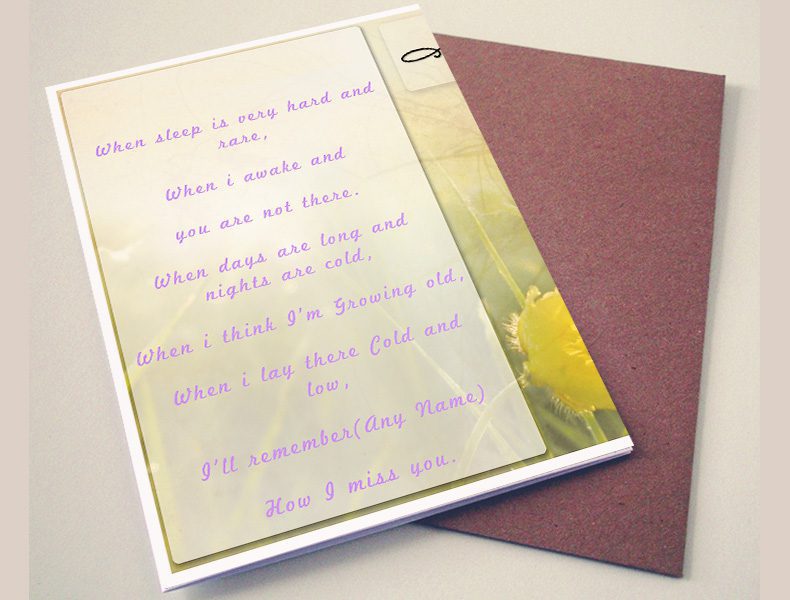 When sleep is very hard and
rare,
When i awake and
you are not there.
When days are long and
nights are cold,
When i think I'm Growing old,
When i lay there Cold and
low,
I'll remember(Any Name)
How I miss you.